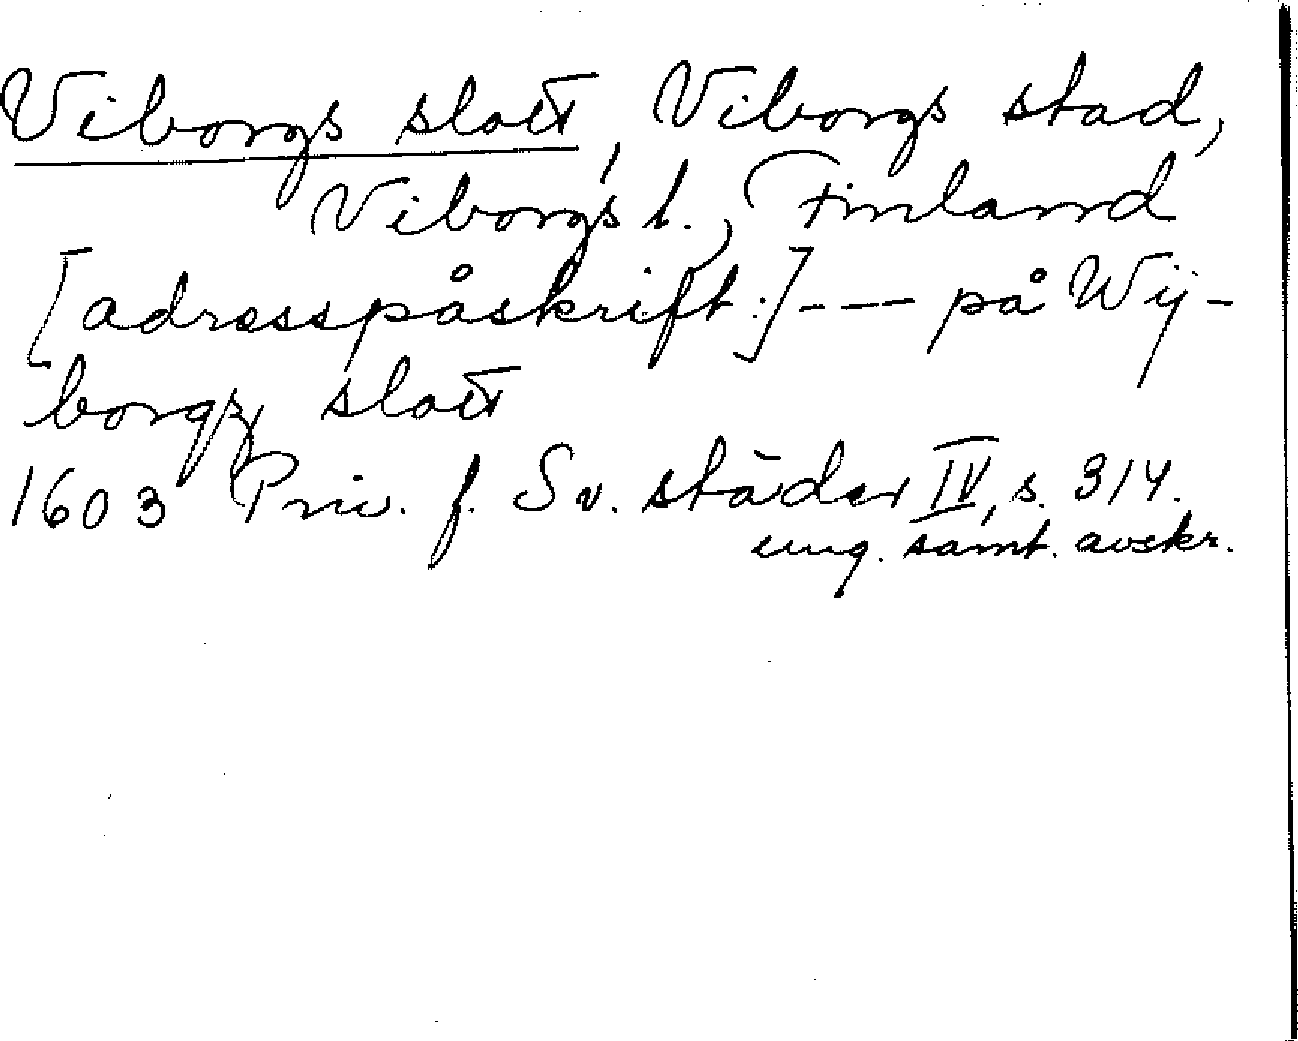 Viborgs slott, Viborgs stad,
Viborgs l., Finland
[adresspåskrift:] --- på Wij-
borgz slott
1603 Priv. f. Sv. städer IV, s. 314.
ung. samt. avskr.